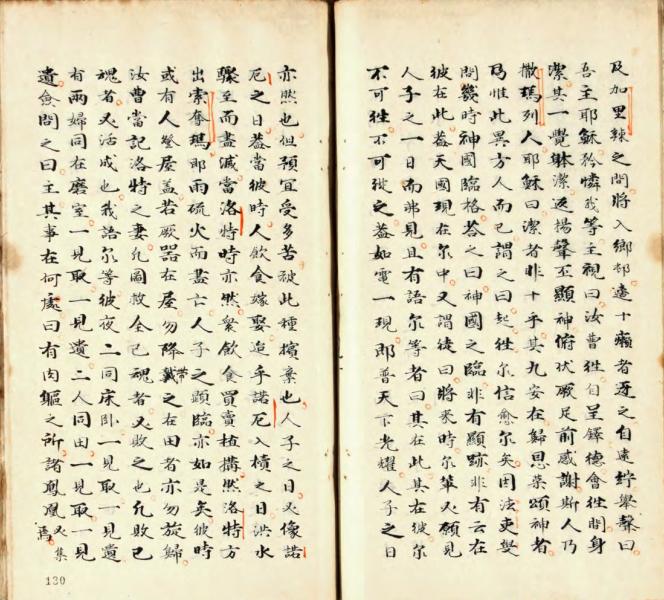 及加里辣之間將入鄉邨遠十癩者迓之自遠竚舉聲曰
吾主耶穌矜憐我等主視曰汝曹徃自呈鐸德會徃間身
潔其一覺躰潔返揚聲丕顯神俯伏厥足前感謝斯人乃
撒瑪列人耶穌曰潔者非十乎其九安在歸恩榮頌神者
乃惟此異方人而已謂之曰起徃尔信愈尔矣因法吏嘗
問幾時神國臨格答之曰神國之臨非有顯跡非有云在
彼在此蓋天國現在尔中又謂徒曰將來時尔輩必願見
人子之一日而弗見且有語尔等者曰其在此其在彼尔
不可徃不可從之蓋如電一現即普天下光耀人子之日
亦然也但預宜受多苦被此種擯棄也人子之日必像諾
厄之日蓋當彼時人飲食嫁娶迨乎諾厄入櫝之日洪水
驟至而盡滅當洛特時亦然衆飲食買賣植搆然洛特方
出索奪瑪即雨硫火而盡亡人子之顯臨亦如是矣彼時
或有人登屋蓋若厥器在屋勿降帶之在田者亦勿旋歸
汝曹當記洛特之妻凡圖救全己魂者必敗之也凡敗己
魂者必活成也我語尔等彼夜二同床卧一見取一見遺
有兩婦同在磨室一見取一見遺二人同田一見取一見
遺僉問之曰主其事在何處曰有肉軀之所諸鳳凰必集焉
130